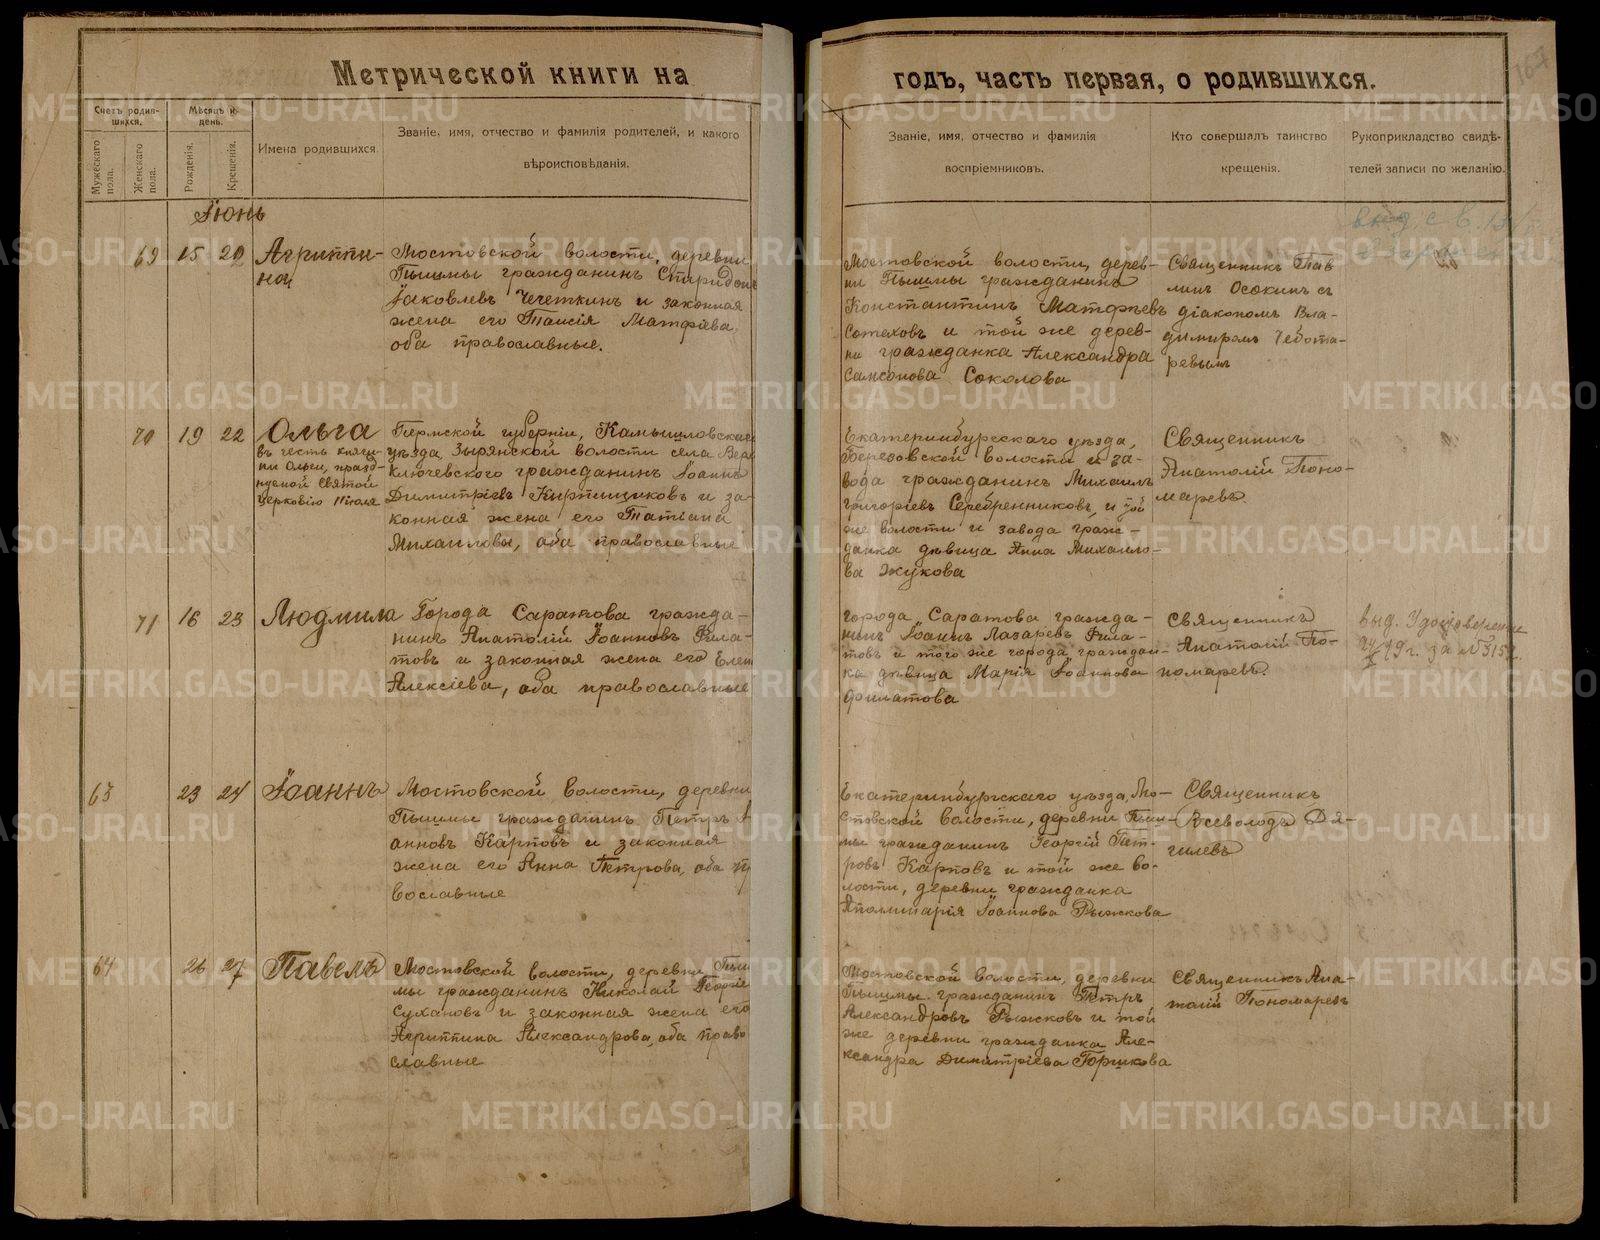 Метрической книги на
годъ, часть первая, о родившихся.
167
Счетъ родив-
шихся.
Мѣсяцъ и
день.
Мужескаго
пола.
Женскаго
пола.
Рожденія.
Крещенія.
Имена родившихся.
Званіе, имя, отчество и фамилія родителей, и какого
вѣроисповѣданія.
Званіе, имя, отчество и фамилія
воспріемниковъ.
Кто совершалъ таинство
крещенія.
Рукоприкладство свидѣ-
телей записи по желанію.
Іюнь
69 15 20 Агриппи-
на
Мостовской волости, деревни
Пышмы гражданинъ Спиридонъ
Іаковлевъ Чечеткинъ и законная
жена его Таисія Матфіева,
оба православные.
Мостовской волости, дерев-
ни Пышмы гражданинъ
Константинъ Матфѣевъ
и той же дерев-
ни гражданка Александра
Самсонова Соколова
Священникъ Пав
Осокинъ съ
діакономъ Вла-
димиромъ Чебота-
ревымъ
70 19 22 Ольга
въ честь княги-
ни Ольги, празд-
нуемой Святой
Церковію 11 іюля
Пермской губерніи, Камышловскаго
уѣзда, Зырянской волости села
Ключевского гражданинъ Іоаннъ
Димитріевъ Кирпищиковъ и за-
конная жена его Татіана
Михаилова, оба православные
Екатеринбургскаго уѣзда,
Березовской волости и за-
вода гражданинъ Михаилъ
Григоріевъ Серебренниковъ, и той
же волости и завода граж-
данка дѣвица Анна Михаило-
ва Жукова
Священникъ
Анатолій Поно-
маревъ.
71 16 23 Людмила
Города Саратова гражда-
нинъ Анатолій Іоанновъ Фила-
товъ и законная жена его Елен
Алексіева, оба православные
города Саратова гражда-
нинъ Іоаннъ Лазаревъ Фила-
товъ и того же города граждан-
ка дѣвица Марія Іоаннова
Филатова
Священникъ
Анатолій По-
номаревъ.
выд. Удостоверение
49 г. за №
63 23 24 Іоаннъ
Мостовской волости, деревни
Пышмы гражданинъ Петръ І
анновъ Карповъ и законная
жена его Анна Петрова, оба пр
вославные
Екатеринбургскаго уѣзда, Мо-
стовской волости, деревни Пыш-
мы гражданинъ Георгій Пет-
ровъ Карповъ и той же во-
лости, деревни гражданка
Аполлинарія Іоаннова Рыжкова
Священникъ
Всеволодъ Дя-
гилевъ
64 26 27 Павелъ
Мостовской волости, деревни Пыш
мы гражданинъ Николай Георгіе
Сухановъ и законная жена его
Агриппина Александрова, оба право
славные
Мостовской волости, деревни
Пышмы гражданинъ Петръ
Александровъ Рыжковъ и той
же деревни гражданка Але-
ксандра Димитріева Горшкова
Священникъ Ана-
толій Пономаревъ
METRIKI.GASO-URAL.RU